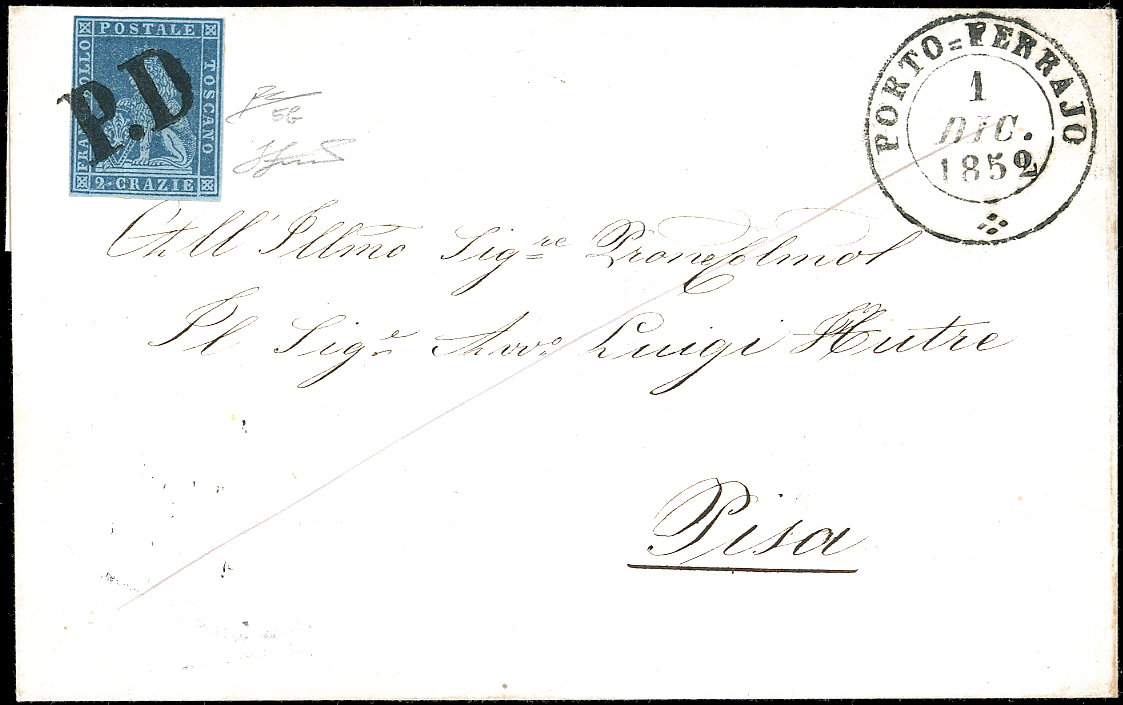 FRANCOBOLLO POSTALE TOSCANO
2-CRAZIE
P.D
PORTO=FERRAJO
1
DIC.
1852
All' Illmo Sigre Prone Colmo
Il Sigr Avvo Luigi
Pisa